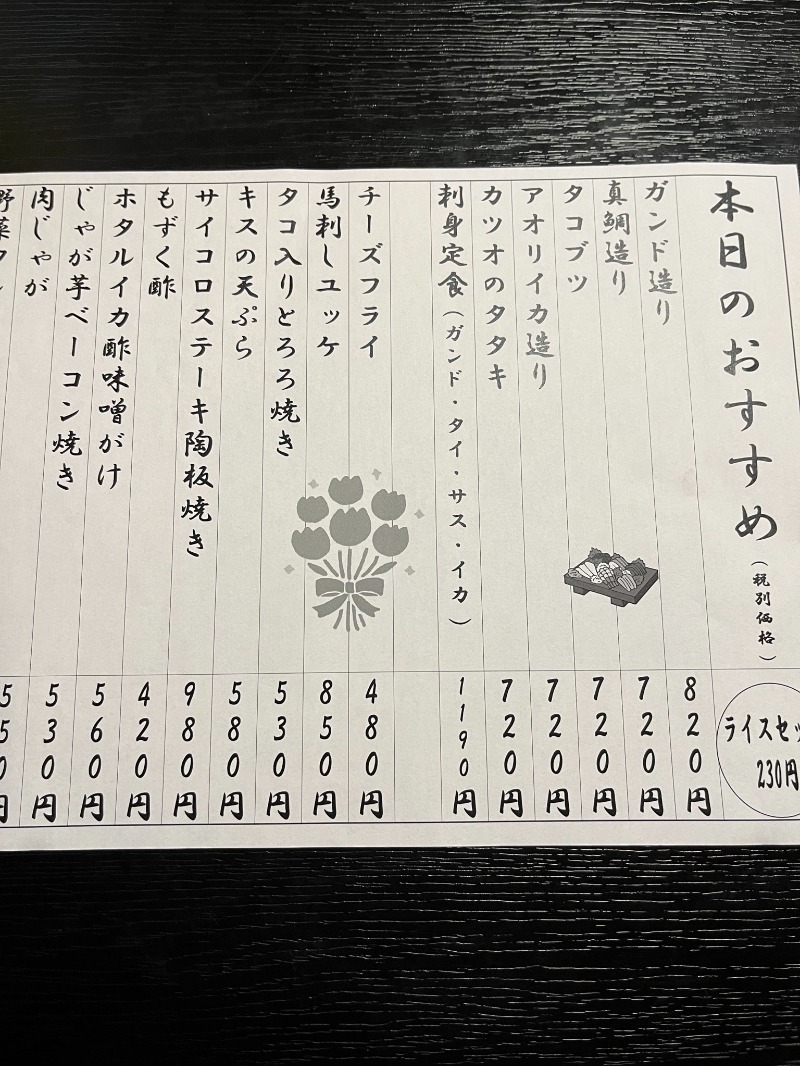 本日のおすすめ（税別価格）
ライスセッ
230円
ガンド造り 820円
真鯛造り 720円
タコブツ 720円
アオリイカ造り 720円
カツオのタタキ 720円
刺身定食（ガンド・タイ・サス・イカ） 1190円
チーズフライ 480円
馬刺しユッケ 850円
タコ入りとろろ焼き 530円
キスの天ぷら 580円
サイコロステーキ陶板焼き 980円
もずく酢 420円
ホタルイカ酢味噌がけ 560円
じゃが芋ベーコン焼き 530円
肉じゃが 550円
野菜